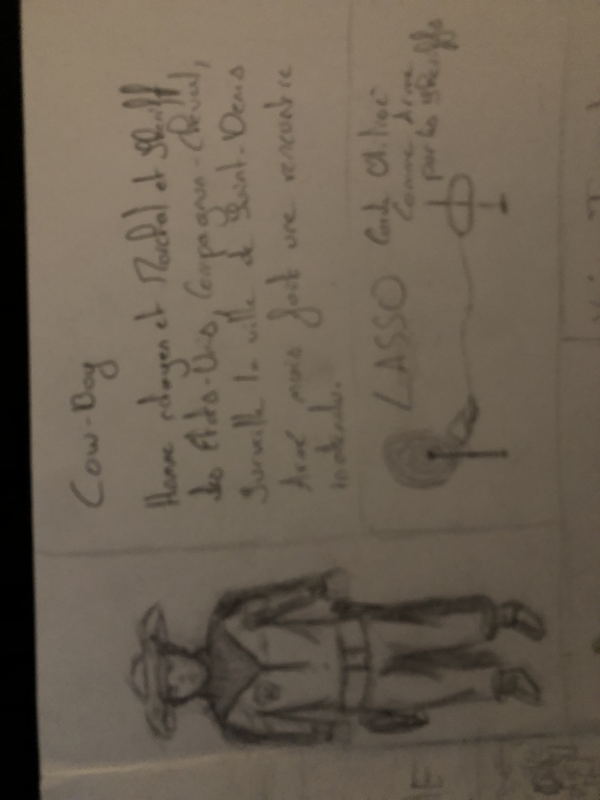 Cow-Boy
Homme citoyen et Marchal et Sheriff
des États-Unis, Compagnon-Cheval,
Surveille la ville de Saint-Denis
Armé mais fait une rencontre
inatendu.
LASSO
Corde Utilisé
Comme Arme
par les Sheriffs